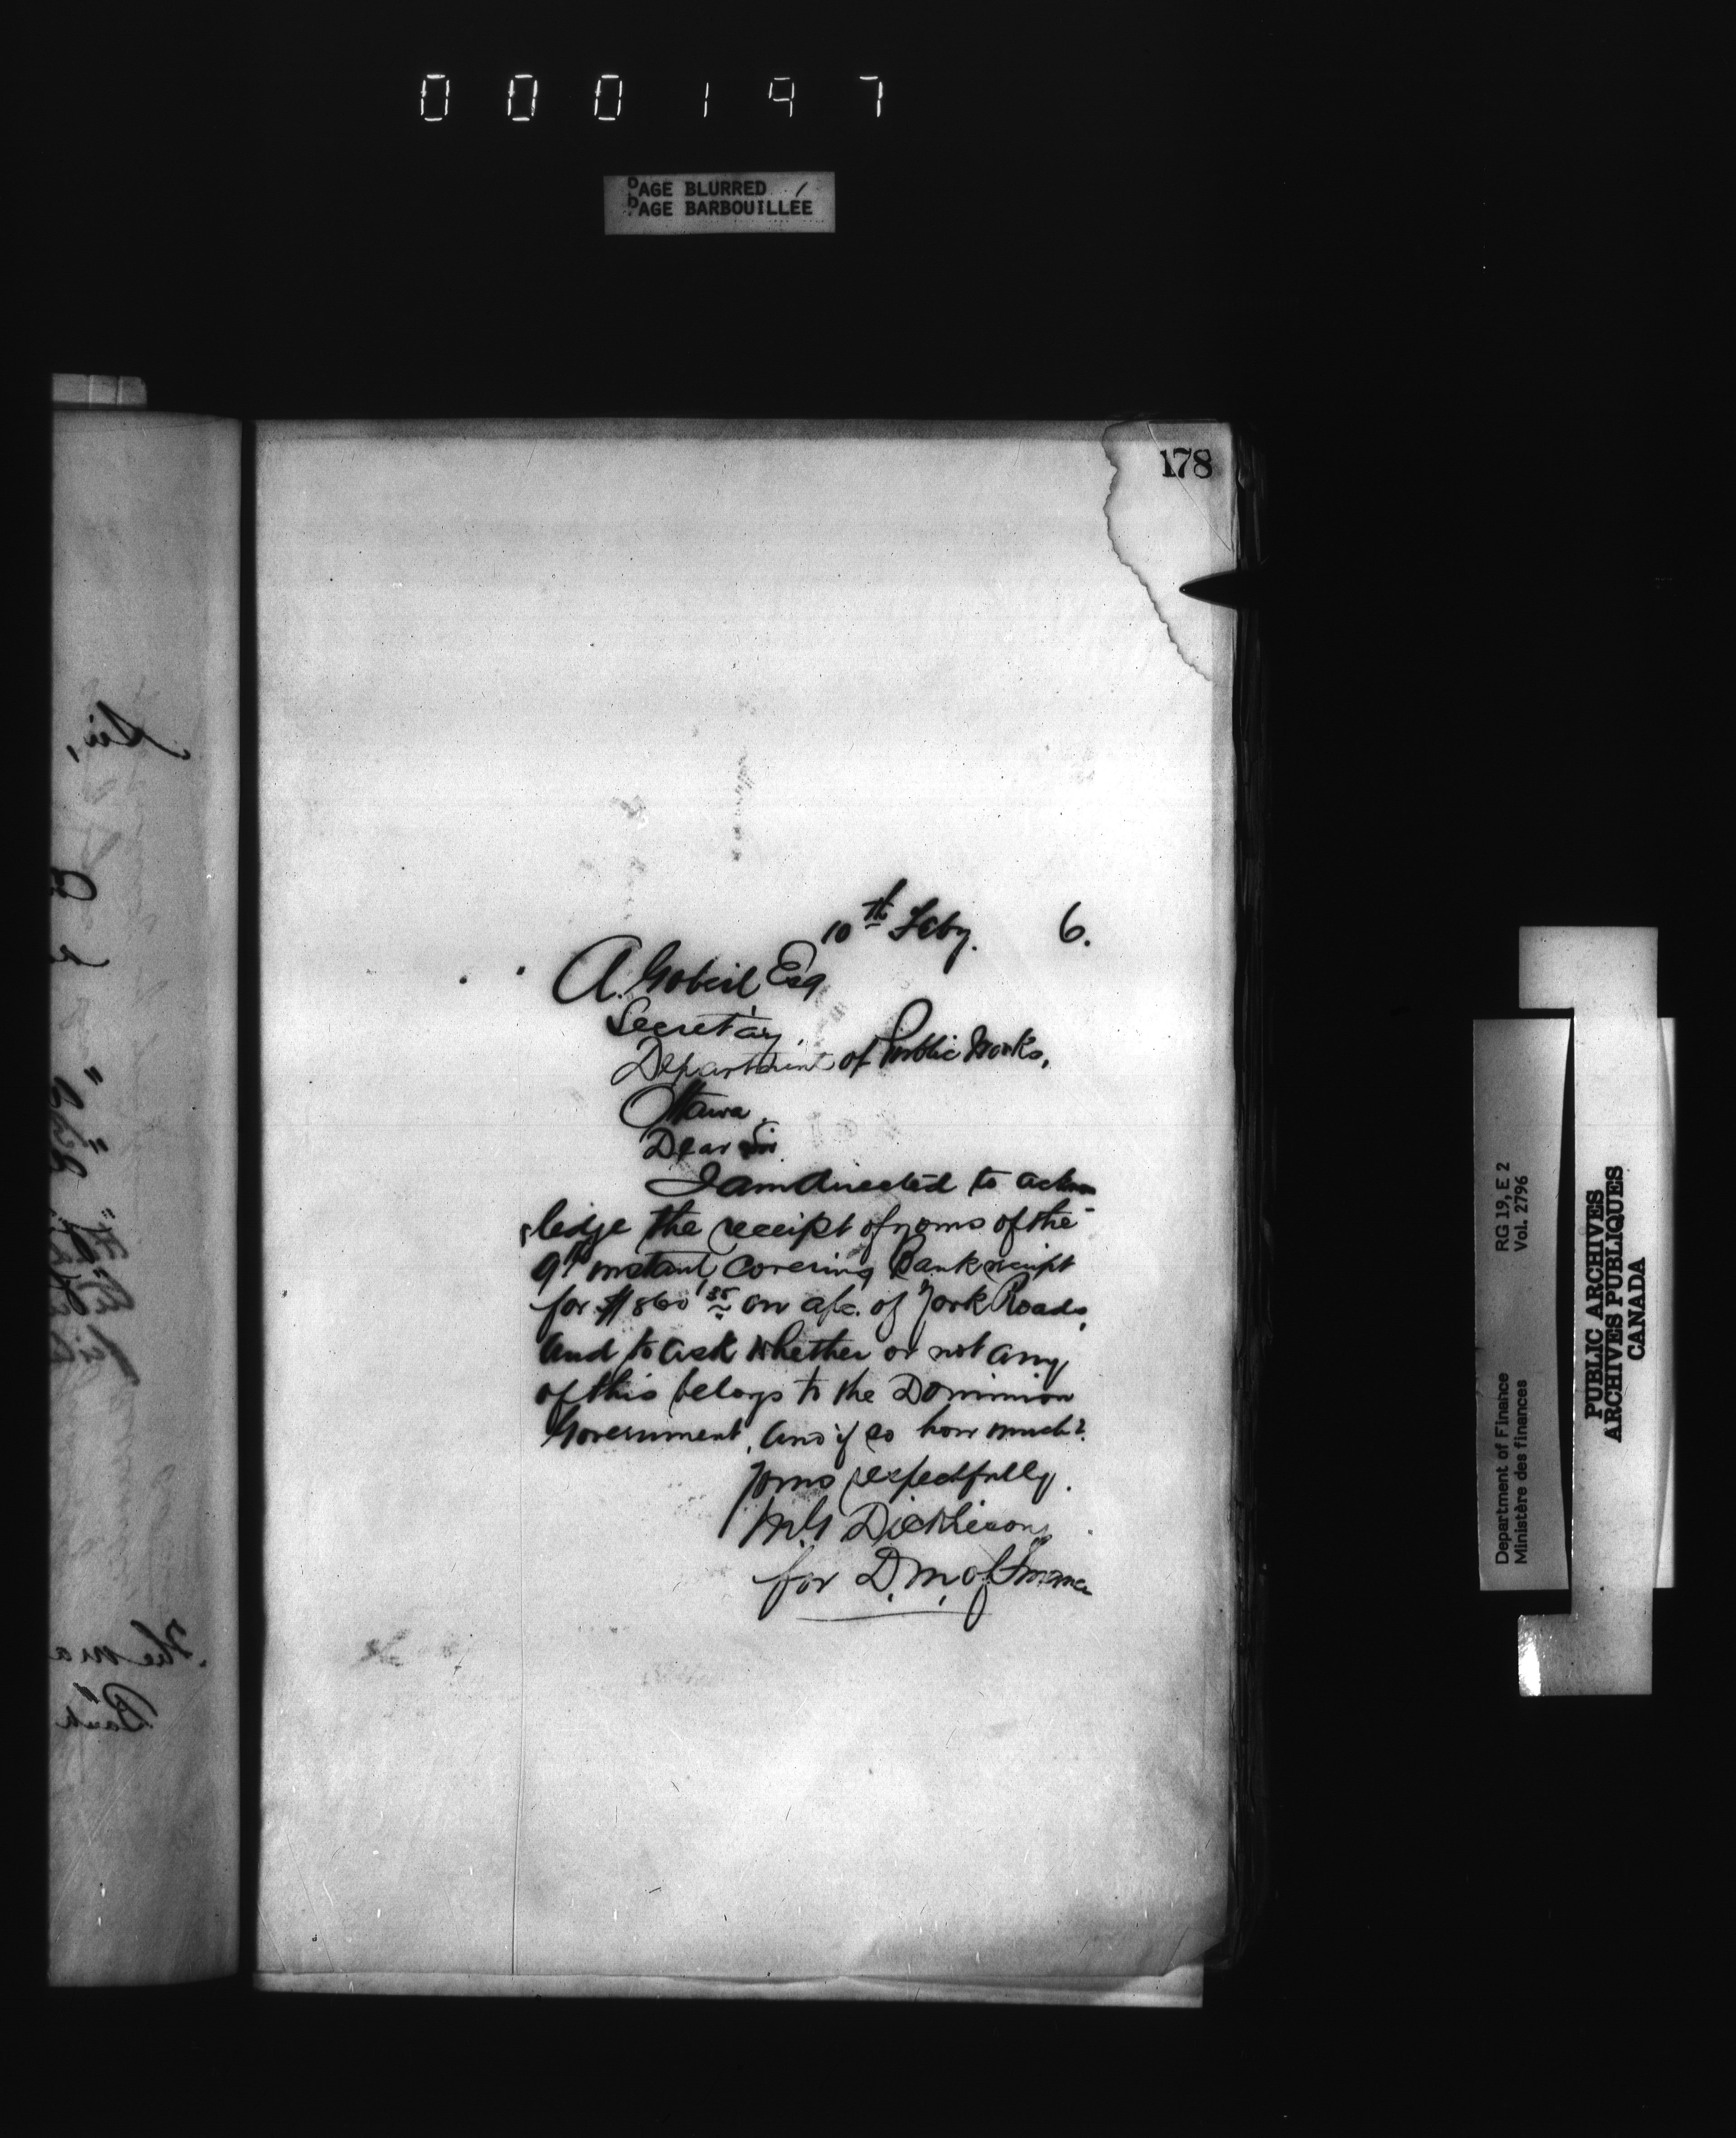 000197
PAGE BLURRED
PAGE BARBOUILLÉE
178
10th Feby. 6.
A. Gobeil Esq
Secretary,
Department of Public Works,
Ottawa.
Dear Sir
I am directed to acknow
ledge the receipt of yours of the
9th instant covering Bank receipt
for $860 35 on a/c. of York Roads,
and to ask whether or not any
of this belogs to the Dominion
Government, and if so how much?
Yours respectfully.
Dickieson
for D.M. of Finance
Sir,
The ma
Bank
Department of Finance RG 19, E 2
Ministère des finances Vol. 2796
PUBLIC ARCHIVES
ARCHIVES PUBLIQUES
CANADA